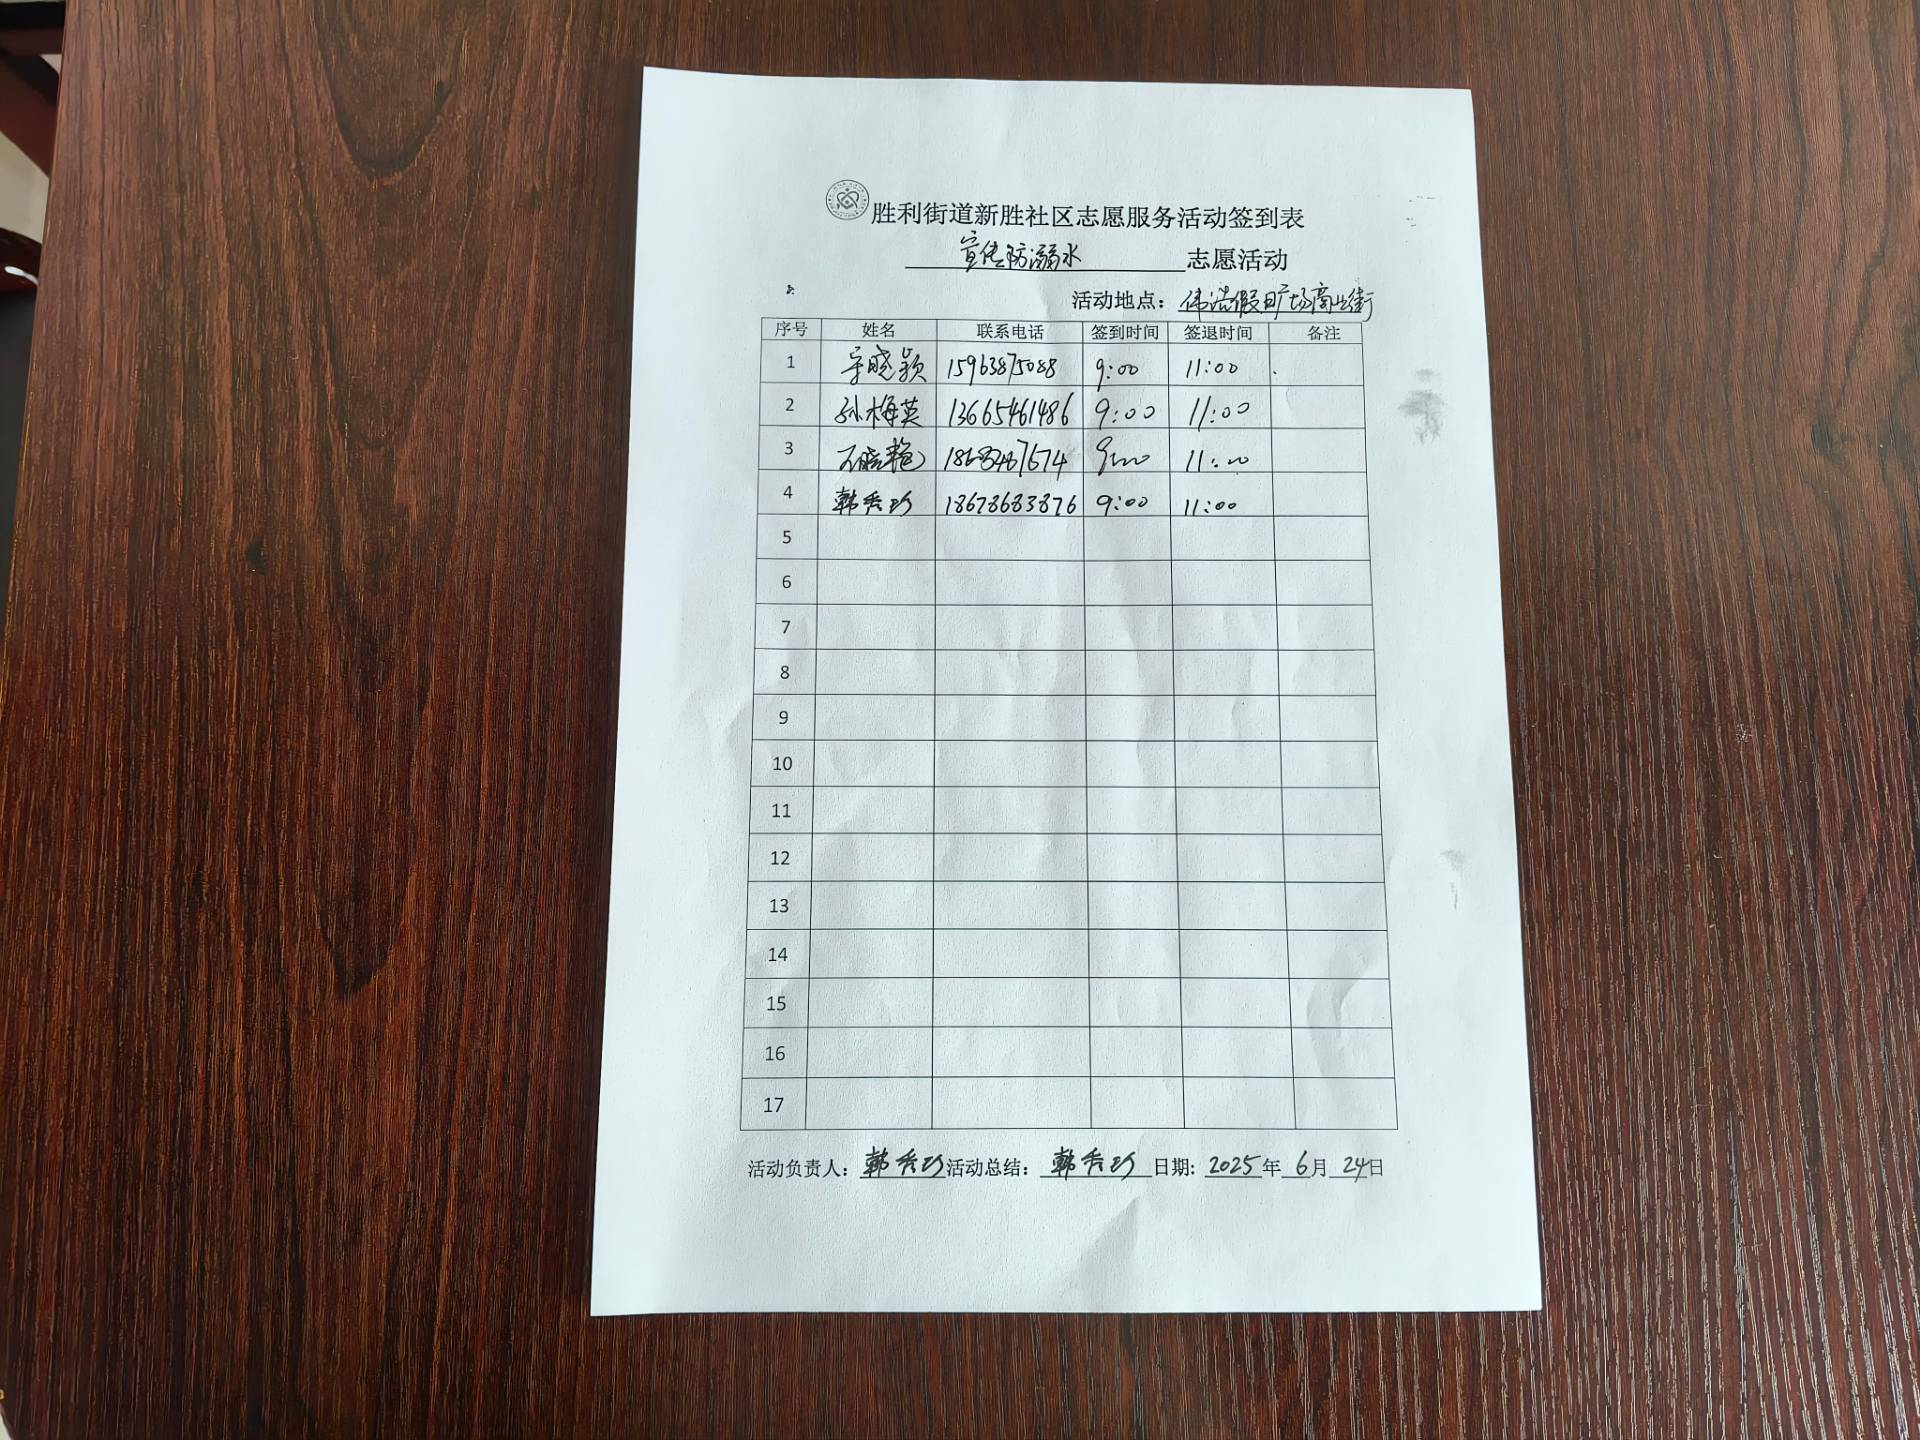 胜利街道新胜社区志愿服务活动签到表
宣传防溺水 志愿活动
活动地点：伟浩假日广场商业街
序号 姓名 联系电话 签到时间 签退时间 备注
1 晓颖 15963875088 9:00 11:00
2 孙梅英 13665461486 9:00 11:00
3 石晓艳 9:00 11:00
4 韩秀珍 18678683876 9:00 11:00
5
6
7
8
9
10
11
12
13
14
15
16
17
活动负责人：韩秀珍 活动总结：韩秀珍 日期：2025年6月24日